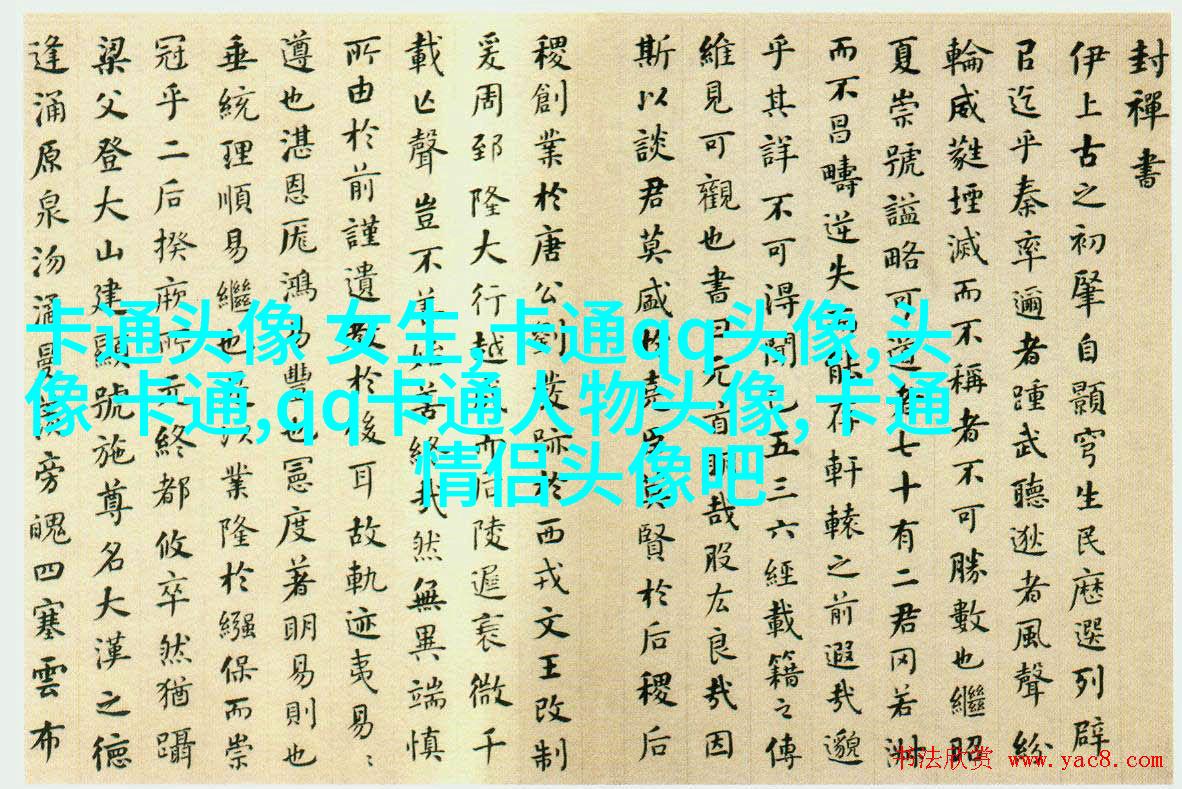 封禪書
伊上古之初肇自顥穹生民歷選列辟
㠯迄乎秦率邇者踵武聽逖者風聲紛
輪威蕤堙滅而不稱者不可勝數也繼昭
夏崇號謚略可道者七十有二君罔若淑
而不昌疇逆失而能存軒轅之前遐哉邈
乎其詳不可得聞已五三六經載籍之傳
維見可觀也書曰元首明哉股厷良哉因
斯以談君莫盛於堯臣莫賢於后稷后
稷創業於唐公劉發跡於西戎文王改制
爰周郅隆大行越成而后陵遲衰微千
載亡聲豈不善始善終哉然無異端慎
所由於前謹遺教於後耳故軌迹夷易〻
遵也湛恩厖鴻易豐也憲度著明易則也
垂統理順易繼也是以業隆於繈保而崇
冠乎二后揆厥所元終都攸卒然猶躡
梁父登大山建顯號施尊名大漢之德
逢涌原泉沕潏曼羨旁魄四塞雲布
卡通头像 女生,卡通qq头像,头
像 卡通,qq卡通人物头像, 卡通
情侣头像吧
书法欣赏 www.yac8.com